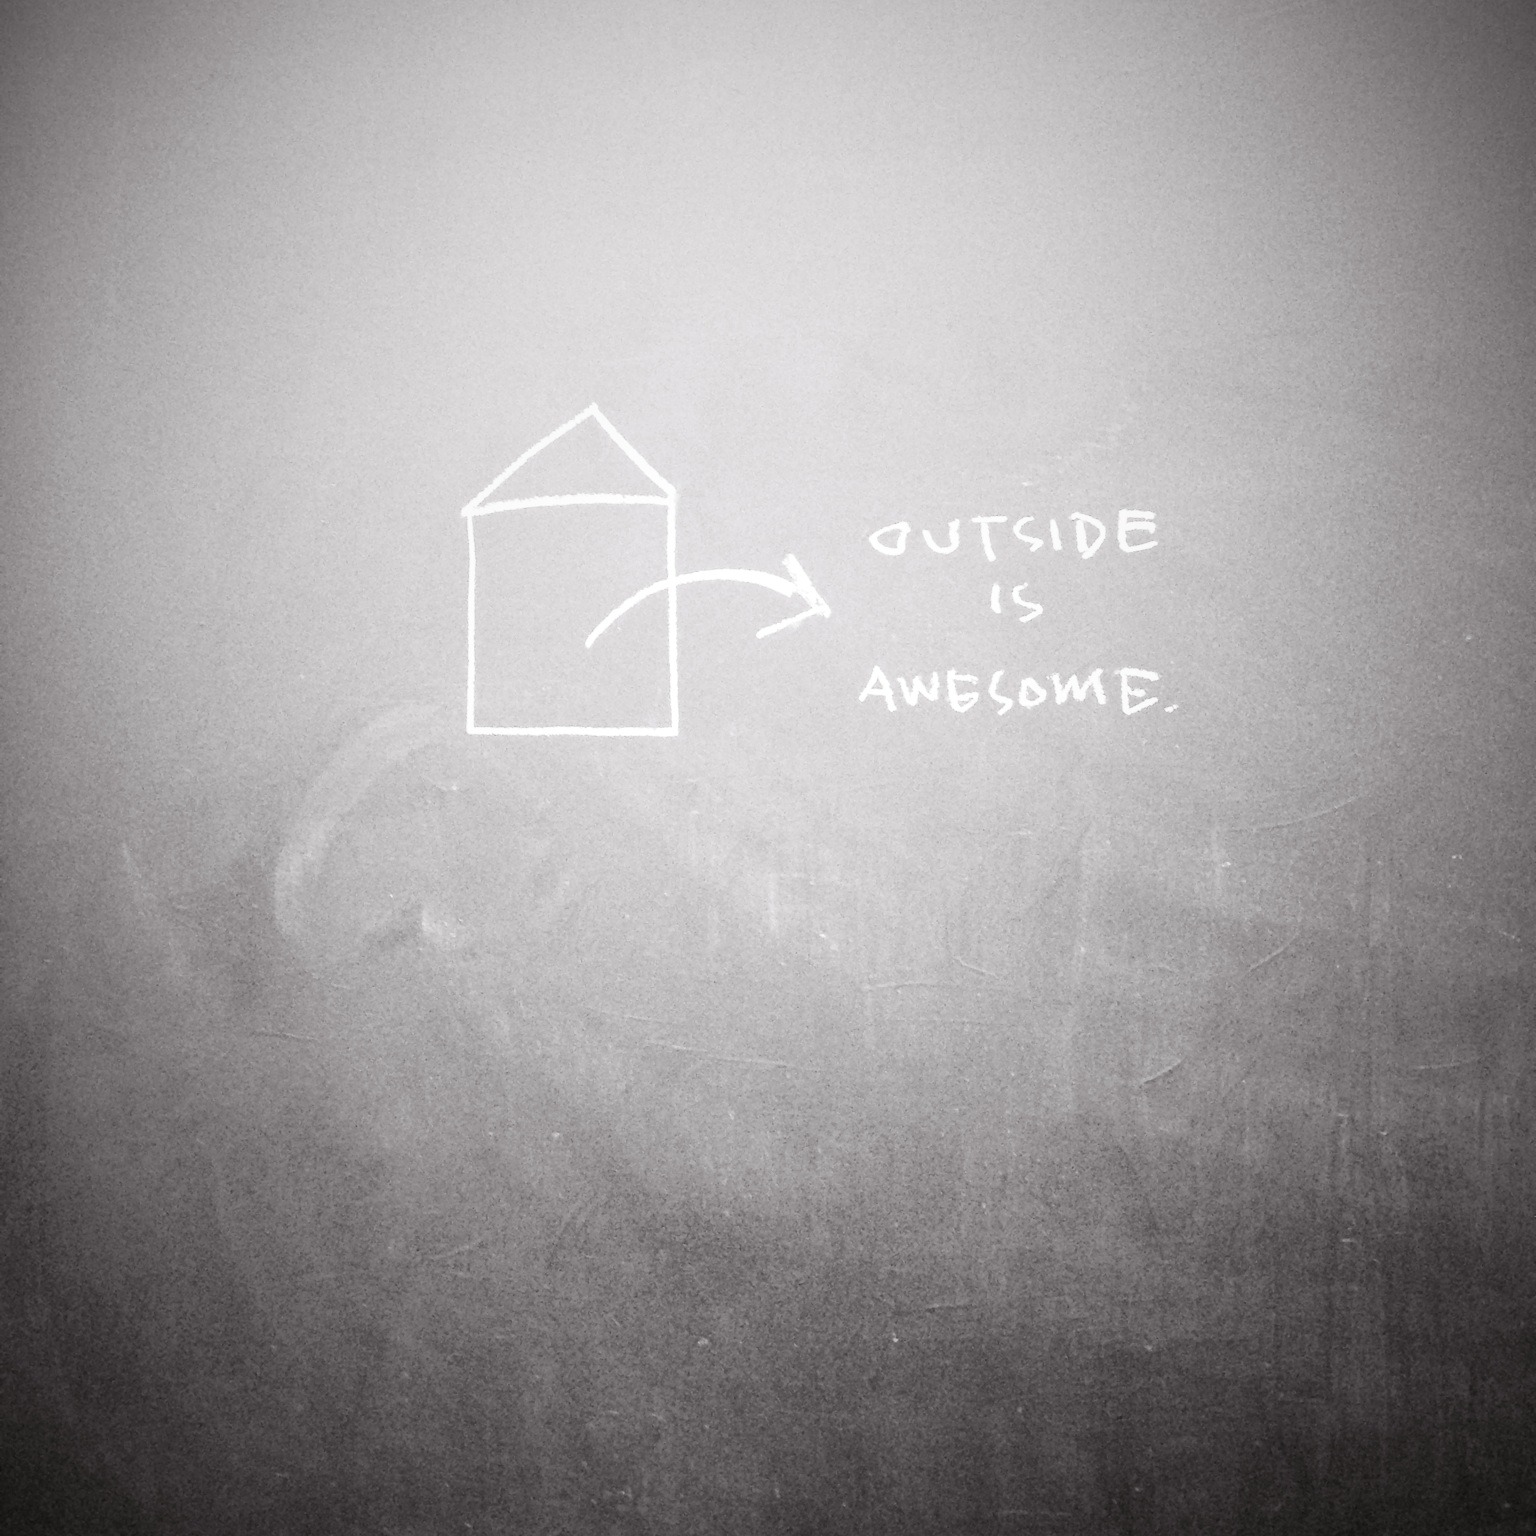 OUTSIDE
IS
AWESOME.